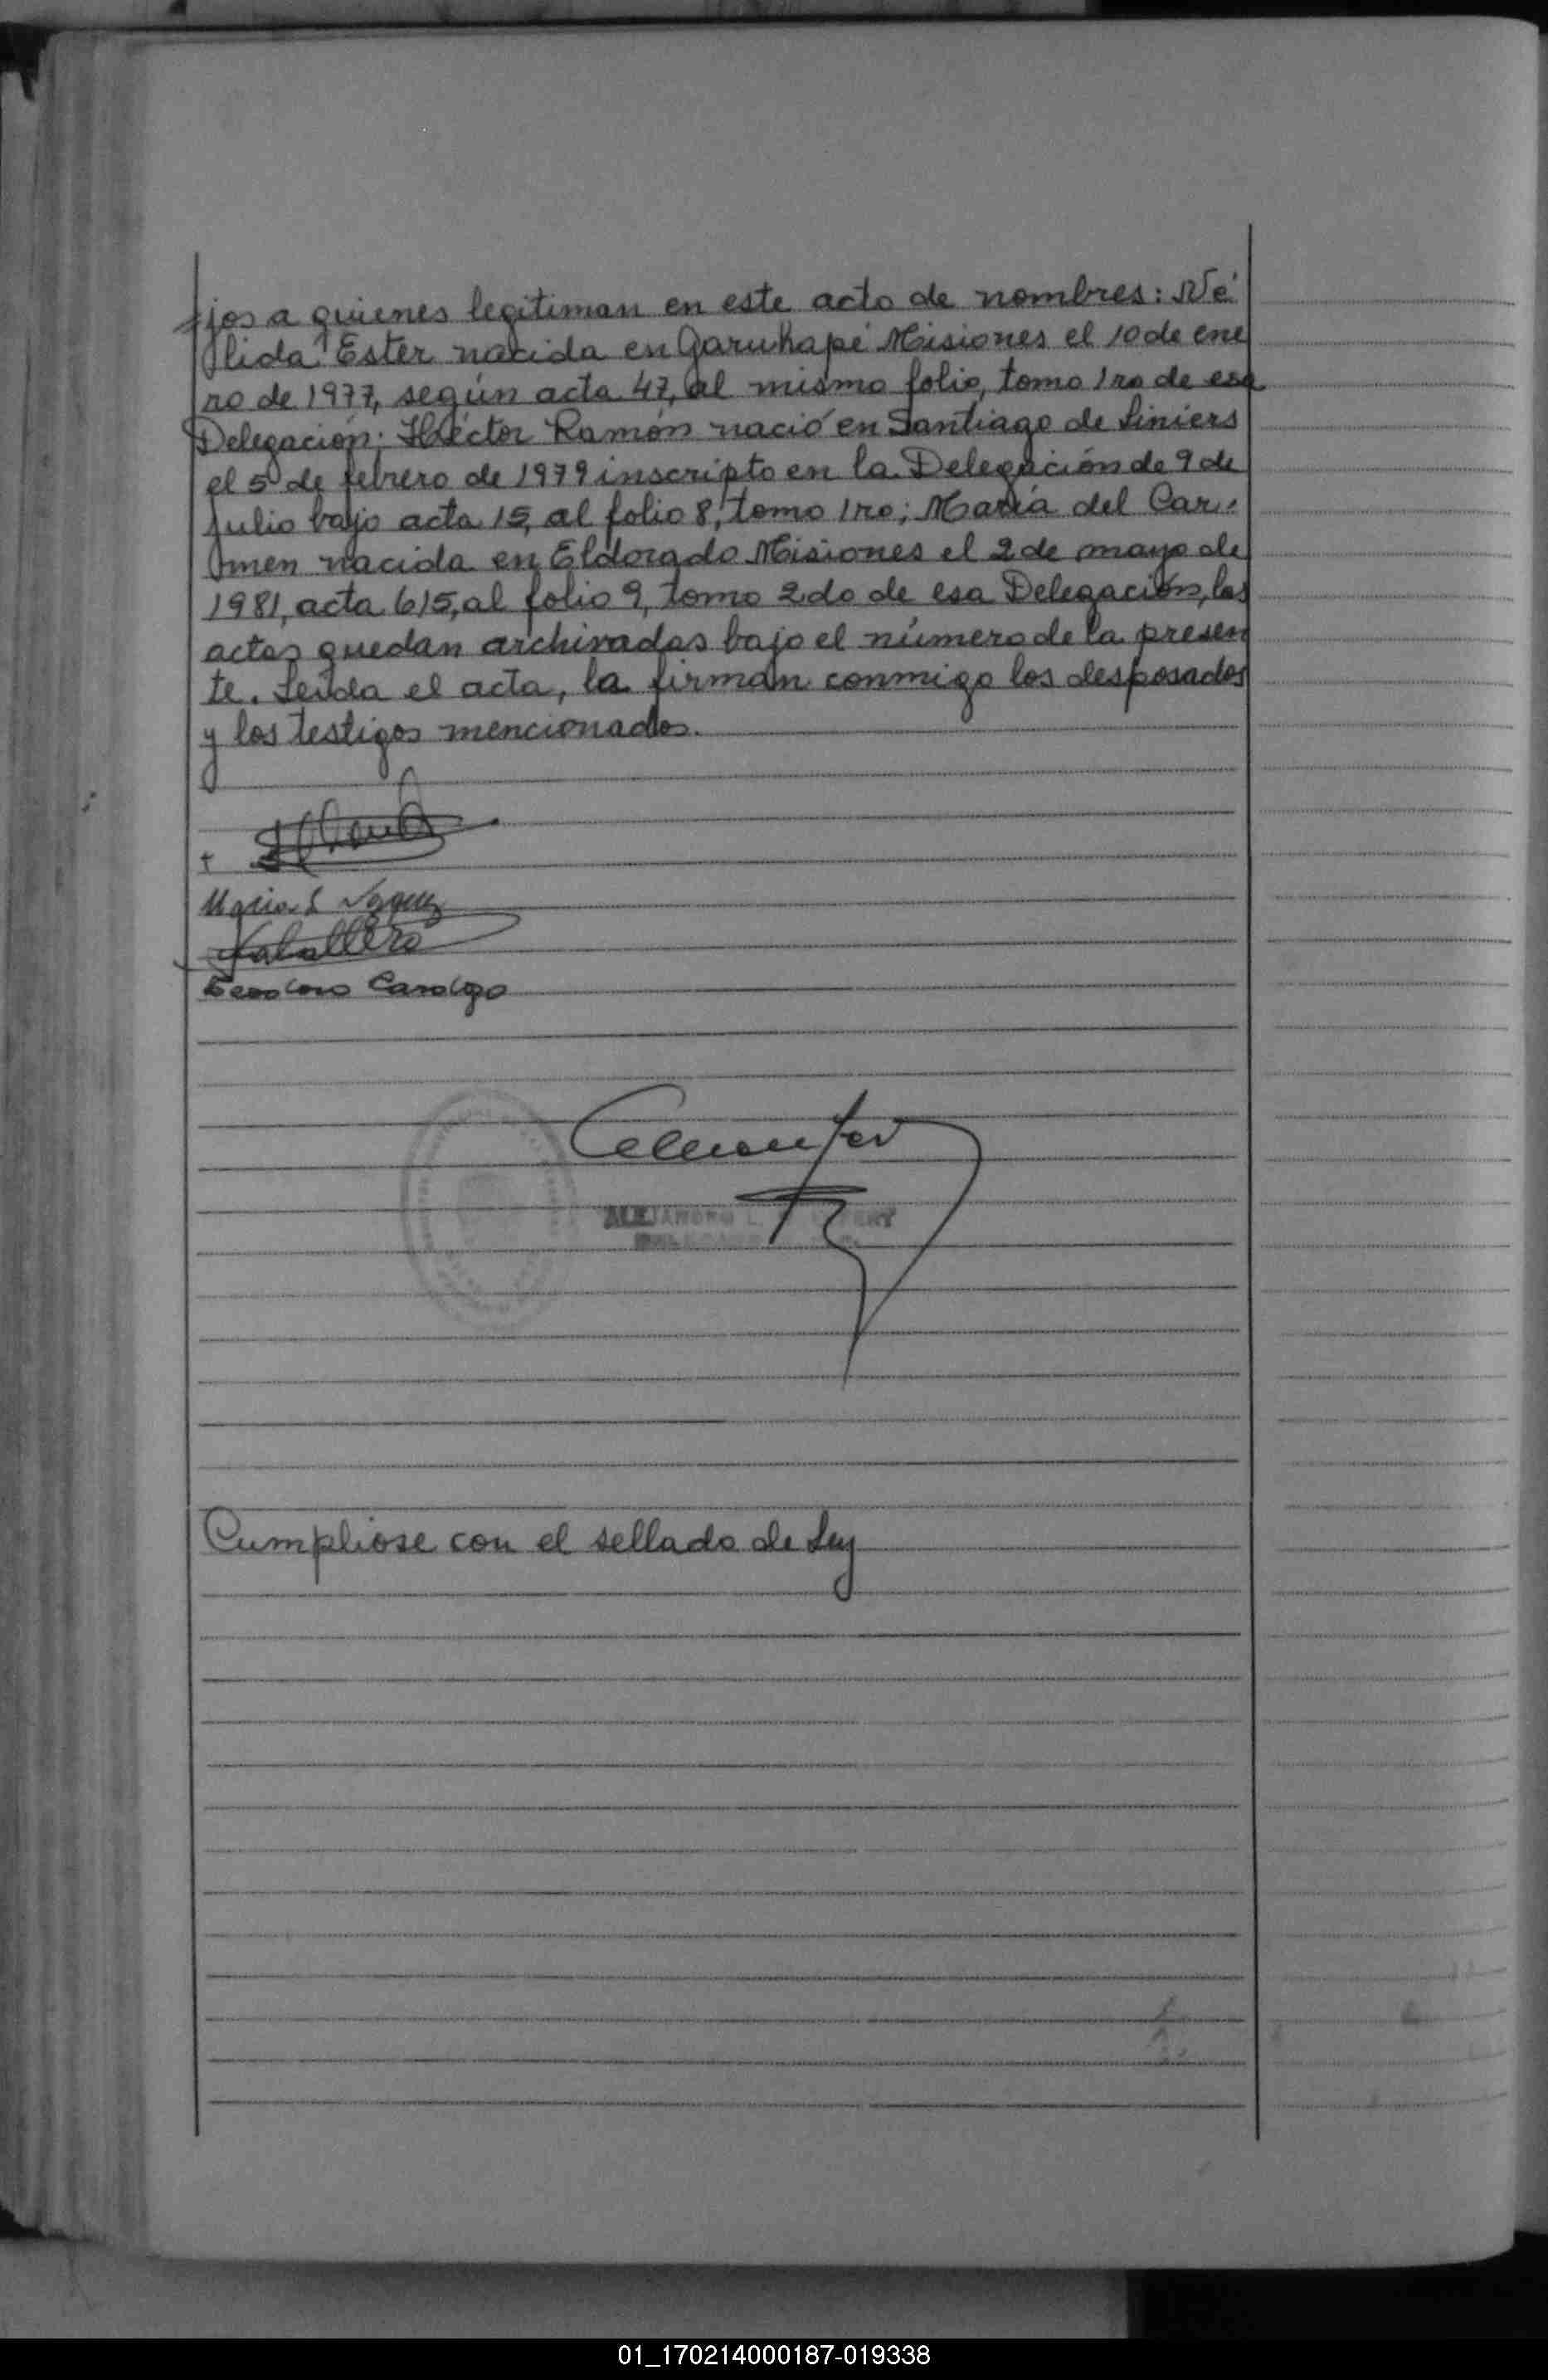 jos a quienes legitiman en este acto de nombres: Né
lida Ester nacida en Garuhapé Misiones el 10 de ene
ro de 1977, según acta 47, al mismo folio, tomo 1ro de esa
Delegación; Héctor Ramón nació en Santiago de Liniers
el 5 de febrero de 1979 inscripto en la Delegación de 9 de
Julio bajo acta 15, al folio 8, tomo 1ro; María del Car-
men nacida en Eldorado Misiones el 2 de mayo de
1981, acta 615, al folio 9, tomo 2do de esa Delegación, las
actas quedan archivadas bajo el número de la presen
te. Leída el acta, la firman conmigo los desposados
y los testigos mencionados.
Maria L
Caballero
Teodoro
ALEJANDRO L.
Cumpliose con el sellado de Ley
01_170214000187-019338